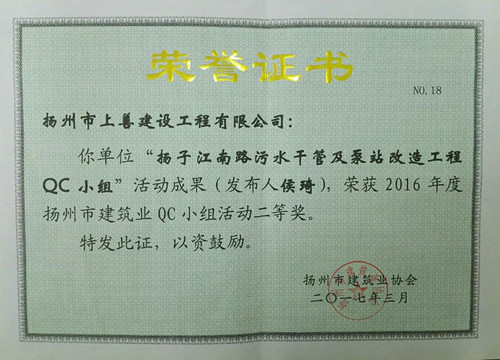 荣誉证书
NO.18
扬州市上善建设工程有限公司:
你单位“扬子江南路污水干管及泵站改造工程
QC小组”活动成果(发布人侯琦),荣获2016年度
扬州市建筑业QC小组活动二等奖。
特发此证,以资鼓励。
扬州市建筑业协会
二〇一七年三月